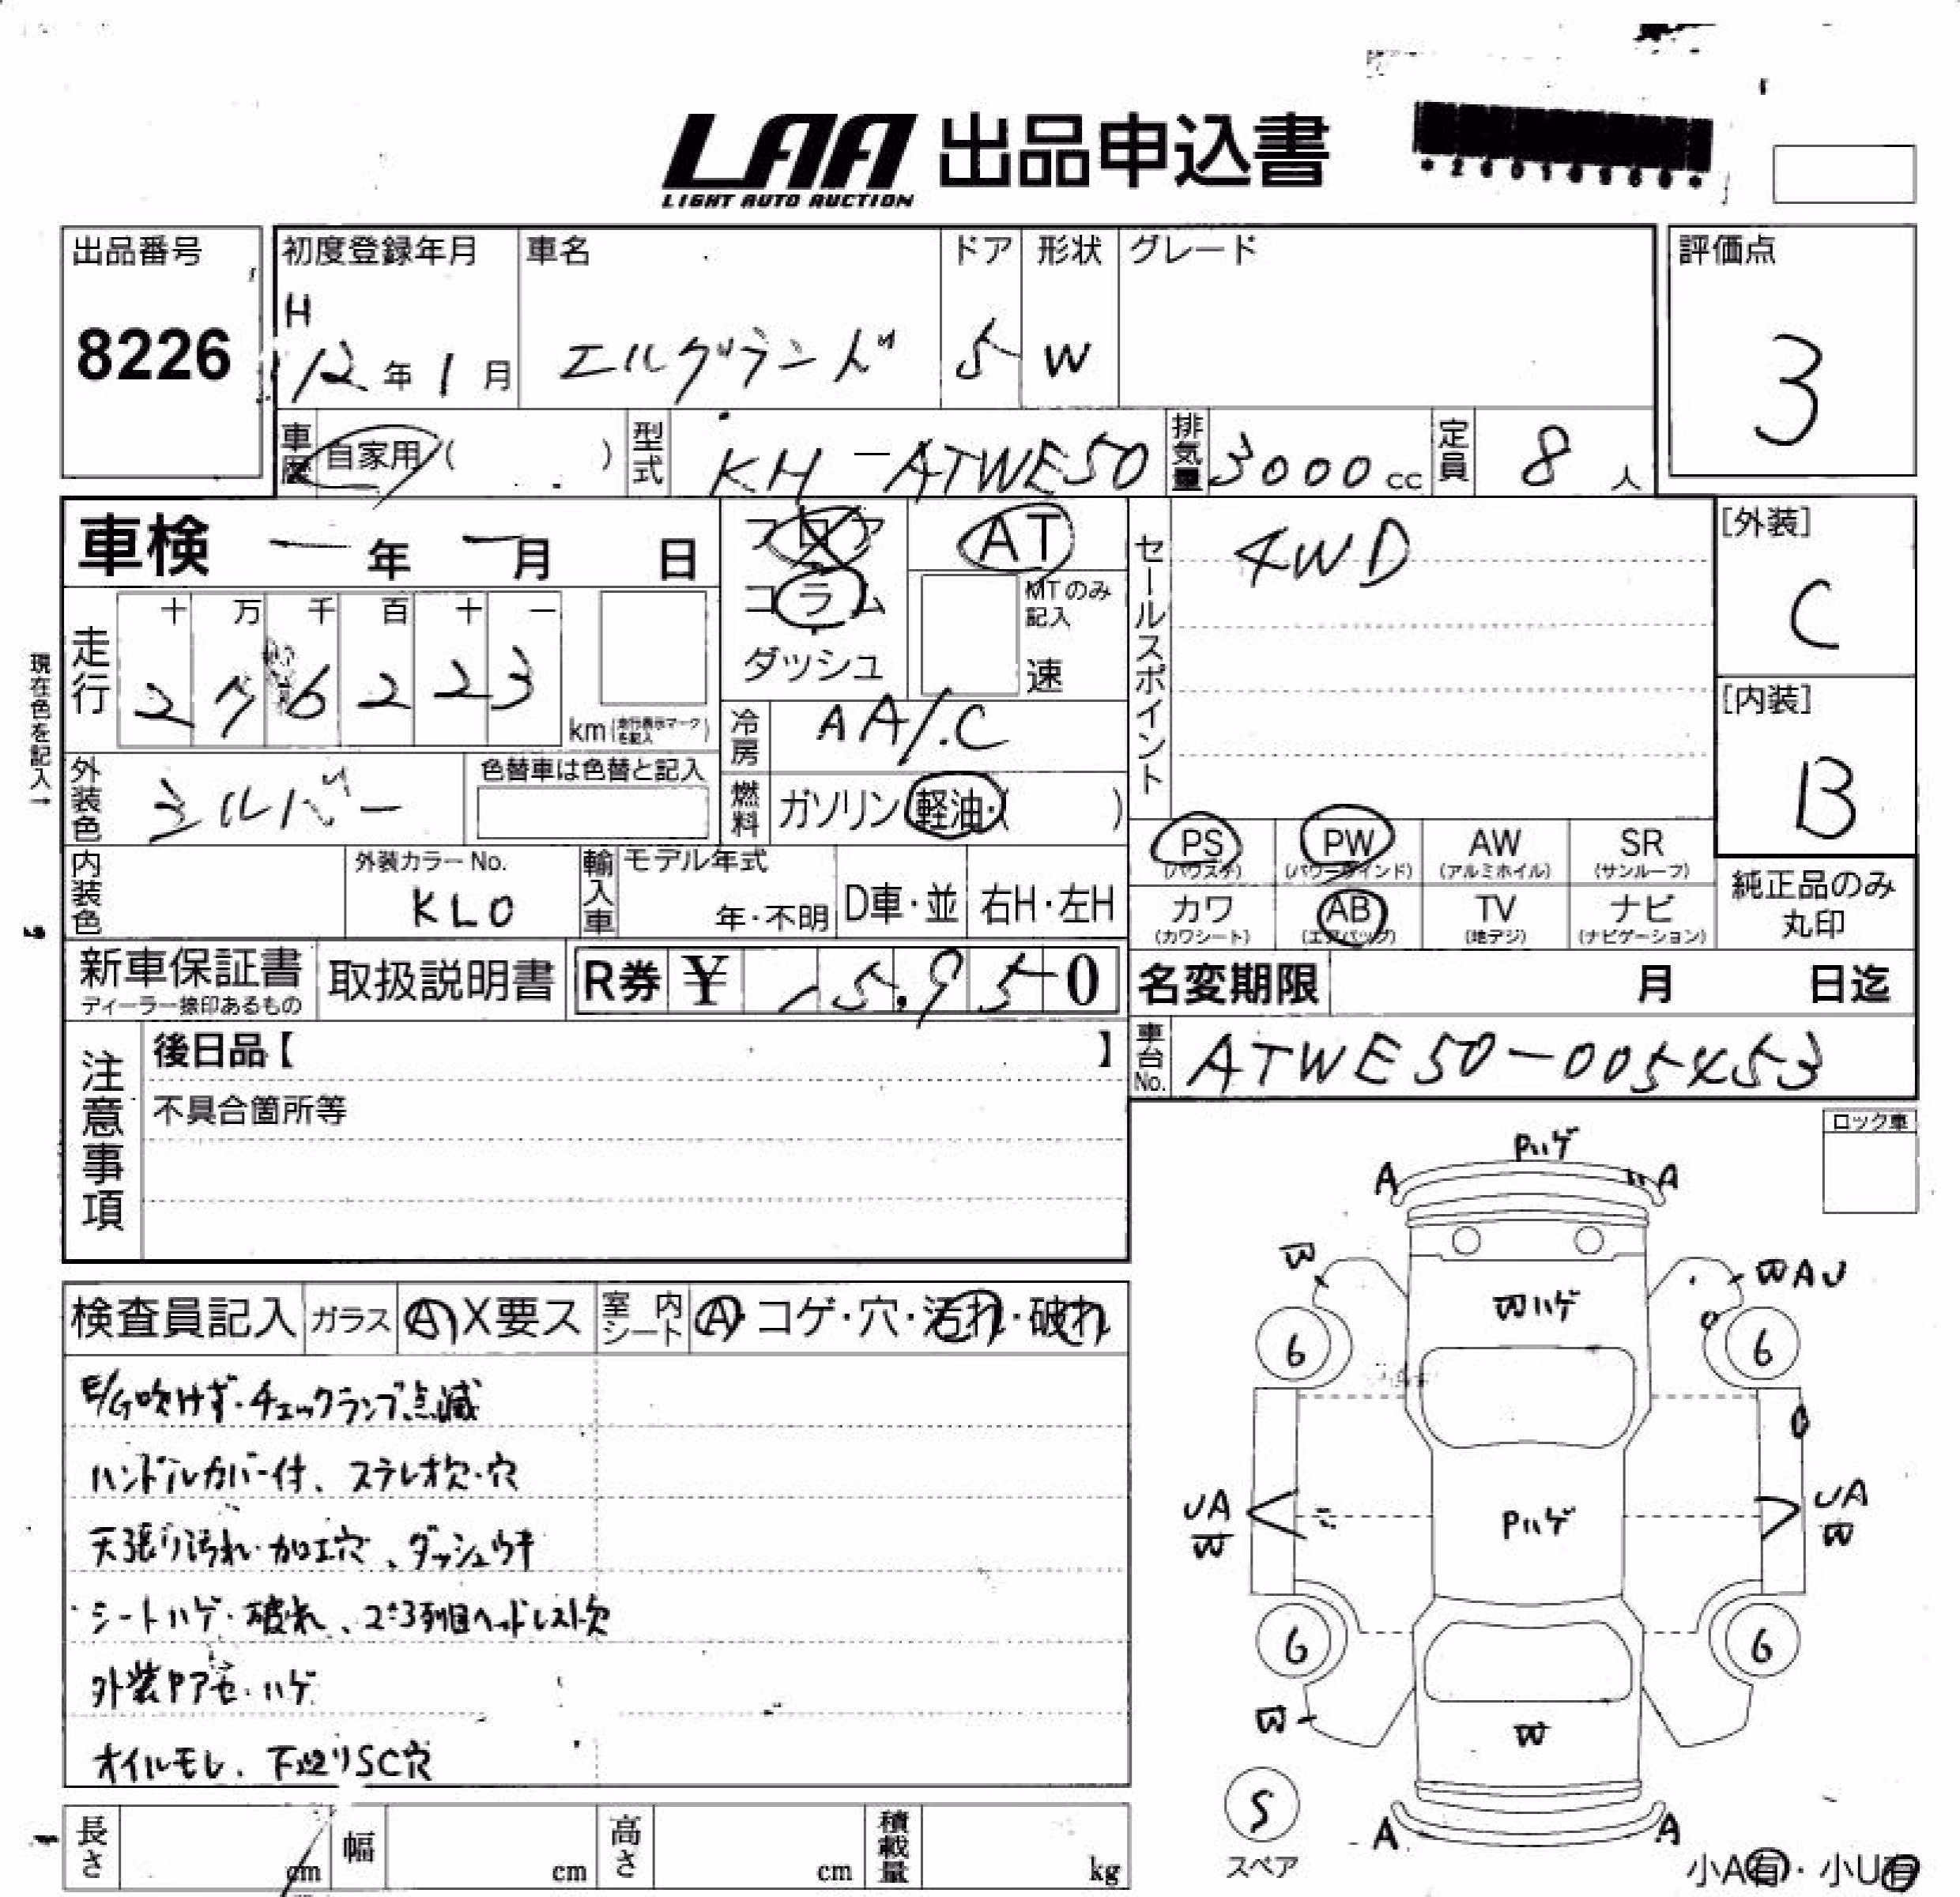 LAA 出品申込書
LIGHT AUTO AUCTION
出品番号
8226
初度登録年月
H
12年1月
車名
エルグランド
ドア
5
形状
W
グレード
評価点
3
車歴
自家用( )
型式
KH-ATWE50
排気量
3000cc
定員
8人
車検 ー年ー月 日
フロア
コラム
ダッシュ
AT
MTのみ記入
速
セールスポイント
4WD
[外装]
C
[内装]
B
現在色を記入→
走行
十 万 千 百 十 一
2 7 6 2 2 3
km(走行表示マークを記入)
冷房
AA/.C
外装色
シルバー
色替車は色替と記入
燃料
ガソリン 軽油・( )
内装色
外装カラーNo.
KL0
輸入車
モデル年式
年・不明
D車・並
右H・左H
PS
(パワステ)
PW
(パワーウインド)
AW
(アルミホイル)
SR
(サンルーフ)
カワ
(カワシート)
AB
(エアバッグ)
TV
(地デジ)
ナビ
(ナビゲーション)
純正品のみ
丸印
新車保証書
ディーラー捺印あるもの
取扱説明書
R券 ¥ 15,950
名変期限 月 日迄
車台No.
ATWE50-005453
注意事項
後日品【 】
不具合箇所等
ロック車
検査員記入
ガラス
A X要ス
室内シート
A・コゲ・穴・汚れ・破れ
E/G吹けず・チェックランプ点滅
ハンドルカバー付、ステレオ欠・穴
天張り汚れ・加工穴、ダッシュウキ
シートハゲ・破れ、2・3列目ヘッドレスト欠
外装Pアセ・ハゲ
オイルモレ、下廻りSC穴
Pハゲ
A
A
W
WAU
Wハゲ
6
6
UA
W
Pハゲ
UA
W
6
6
W
W
S
スペア
A
A
小A有・小U有
長さ
cm
幅
cm
高さ
cm
積載量
kg